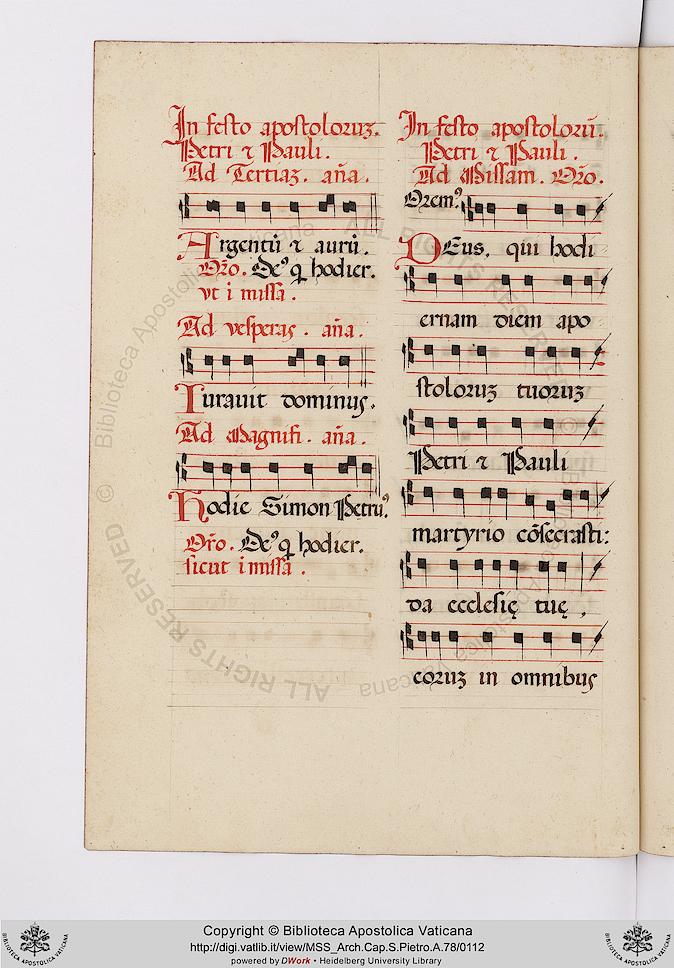 In festo apostoloruꝫ.
Petri ⁊ Pauli.
Ad Tertiaꝫ. añа.
Argentū ⁊ aurū.
Orō. Deꝰ q hodier.
vt i missa.
Ad vesperas. aña.
Iurauit dominus.
Ad Magnifi. aña.
Hodie Simon Petruꝰ.
Orō. Deꝰ q hodier.
sicut i missa.
In festo apostolorū.
Petri ⁊ Pauli.
Ad Missam. Orō.
Oremꝰ
DEus. qui hodi
ernam diem apo
stoloruꝫ tuoruꝫ
Petri ⁊ Pauli
martyrio cōsecrasti:
da ecclesię tuę,
eoruꝫ in omnibus
© Biblioteca Apostolica Vaticana
ALL RIGHTS RESERVED
Copyright © Biblioteca Apostolica Vaticana
http://digi.vatlib.it/view/MSS_Arch.Cap.S.Pietro.A.78/0112
powered by DWork • Heidelberg University Library
BIBLIOTECA APOSTOLICA VATICANA
BIBLIOTECA APOSTOLICA VATICANA